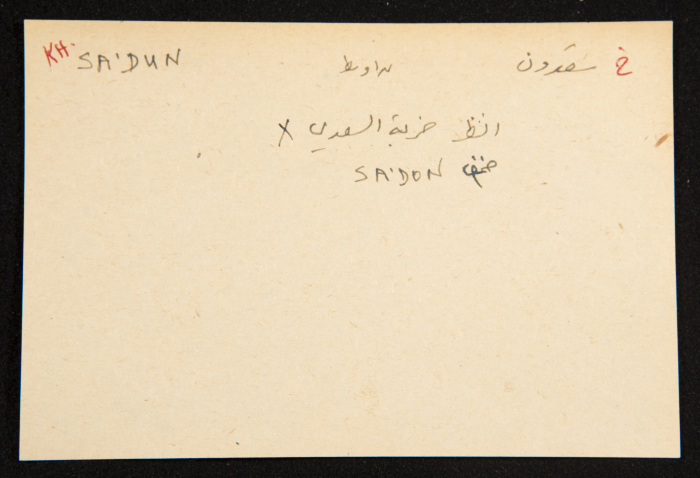 KH. SA'DUN سعدون خ
انظر خربة السعدي X
SA'DON